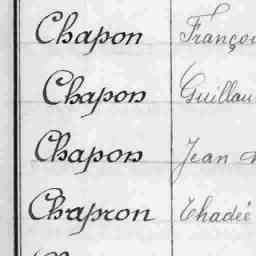 Chapon François
Chapon Guillau
Chapon Jean
Chapron Thadée